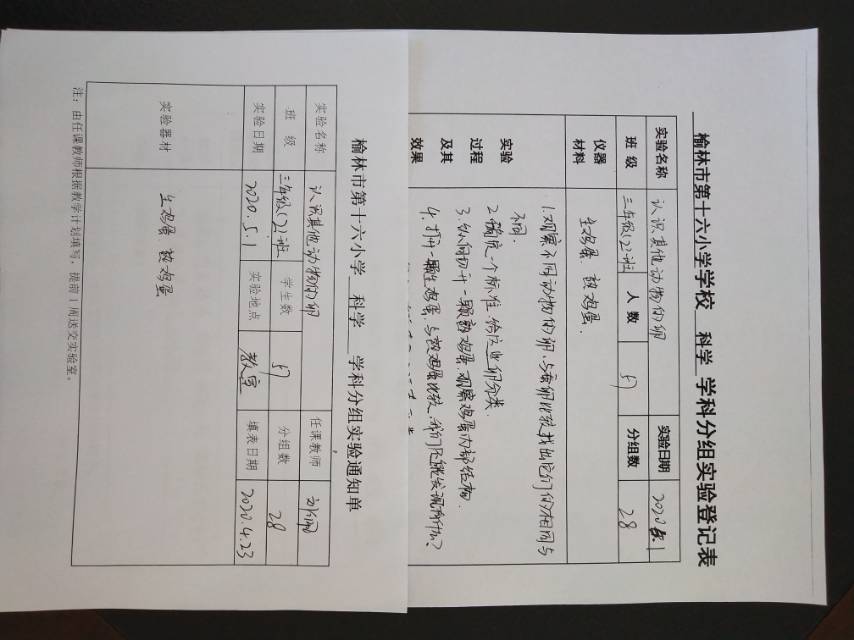 榆林市第十六小学学校 科学 学科分组实验登记表
实验名称 认识其他动物的卵 实验日期 2020.5.1
班 级 三年级(2)班 人 数 57 分组数 28
仪器材料 生鸡蛋、熟鸡蛋.
实验过程及其效果
1.观察不同动物的卵,与蚕卵比较找出它们的相同与
不同.
2.确定一个标准,给这些卵分类.
3.纵向切开一颗熟鸡蛋,观察鸡蛋内部结构.
4.打开一颗生鸡蛋,与熟鸡蛋比较,我们还能发现什么?
榆林市第十六小学 科学 学科分组实验通知单
实验名称 认识其他动物的卵 任课教师
班 级 三年级(2)班 学生数 57 分组数 28
实验日期 2020.5.1 实验地点 教室 填表日期 2020.4.23
实验器材 生鸡蛋、熟鸡蛋
注:由任课教师根据教学计划填写,提前1周送交实验室。